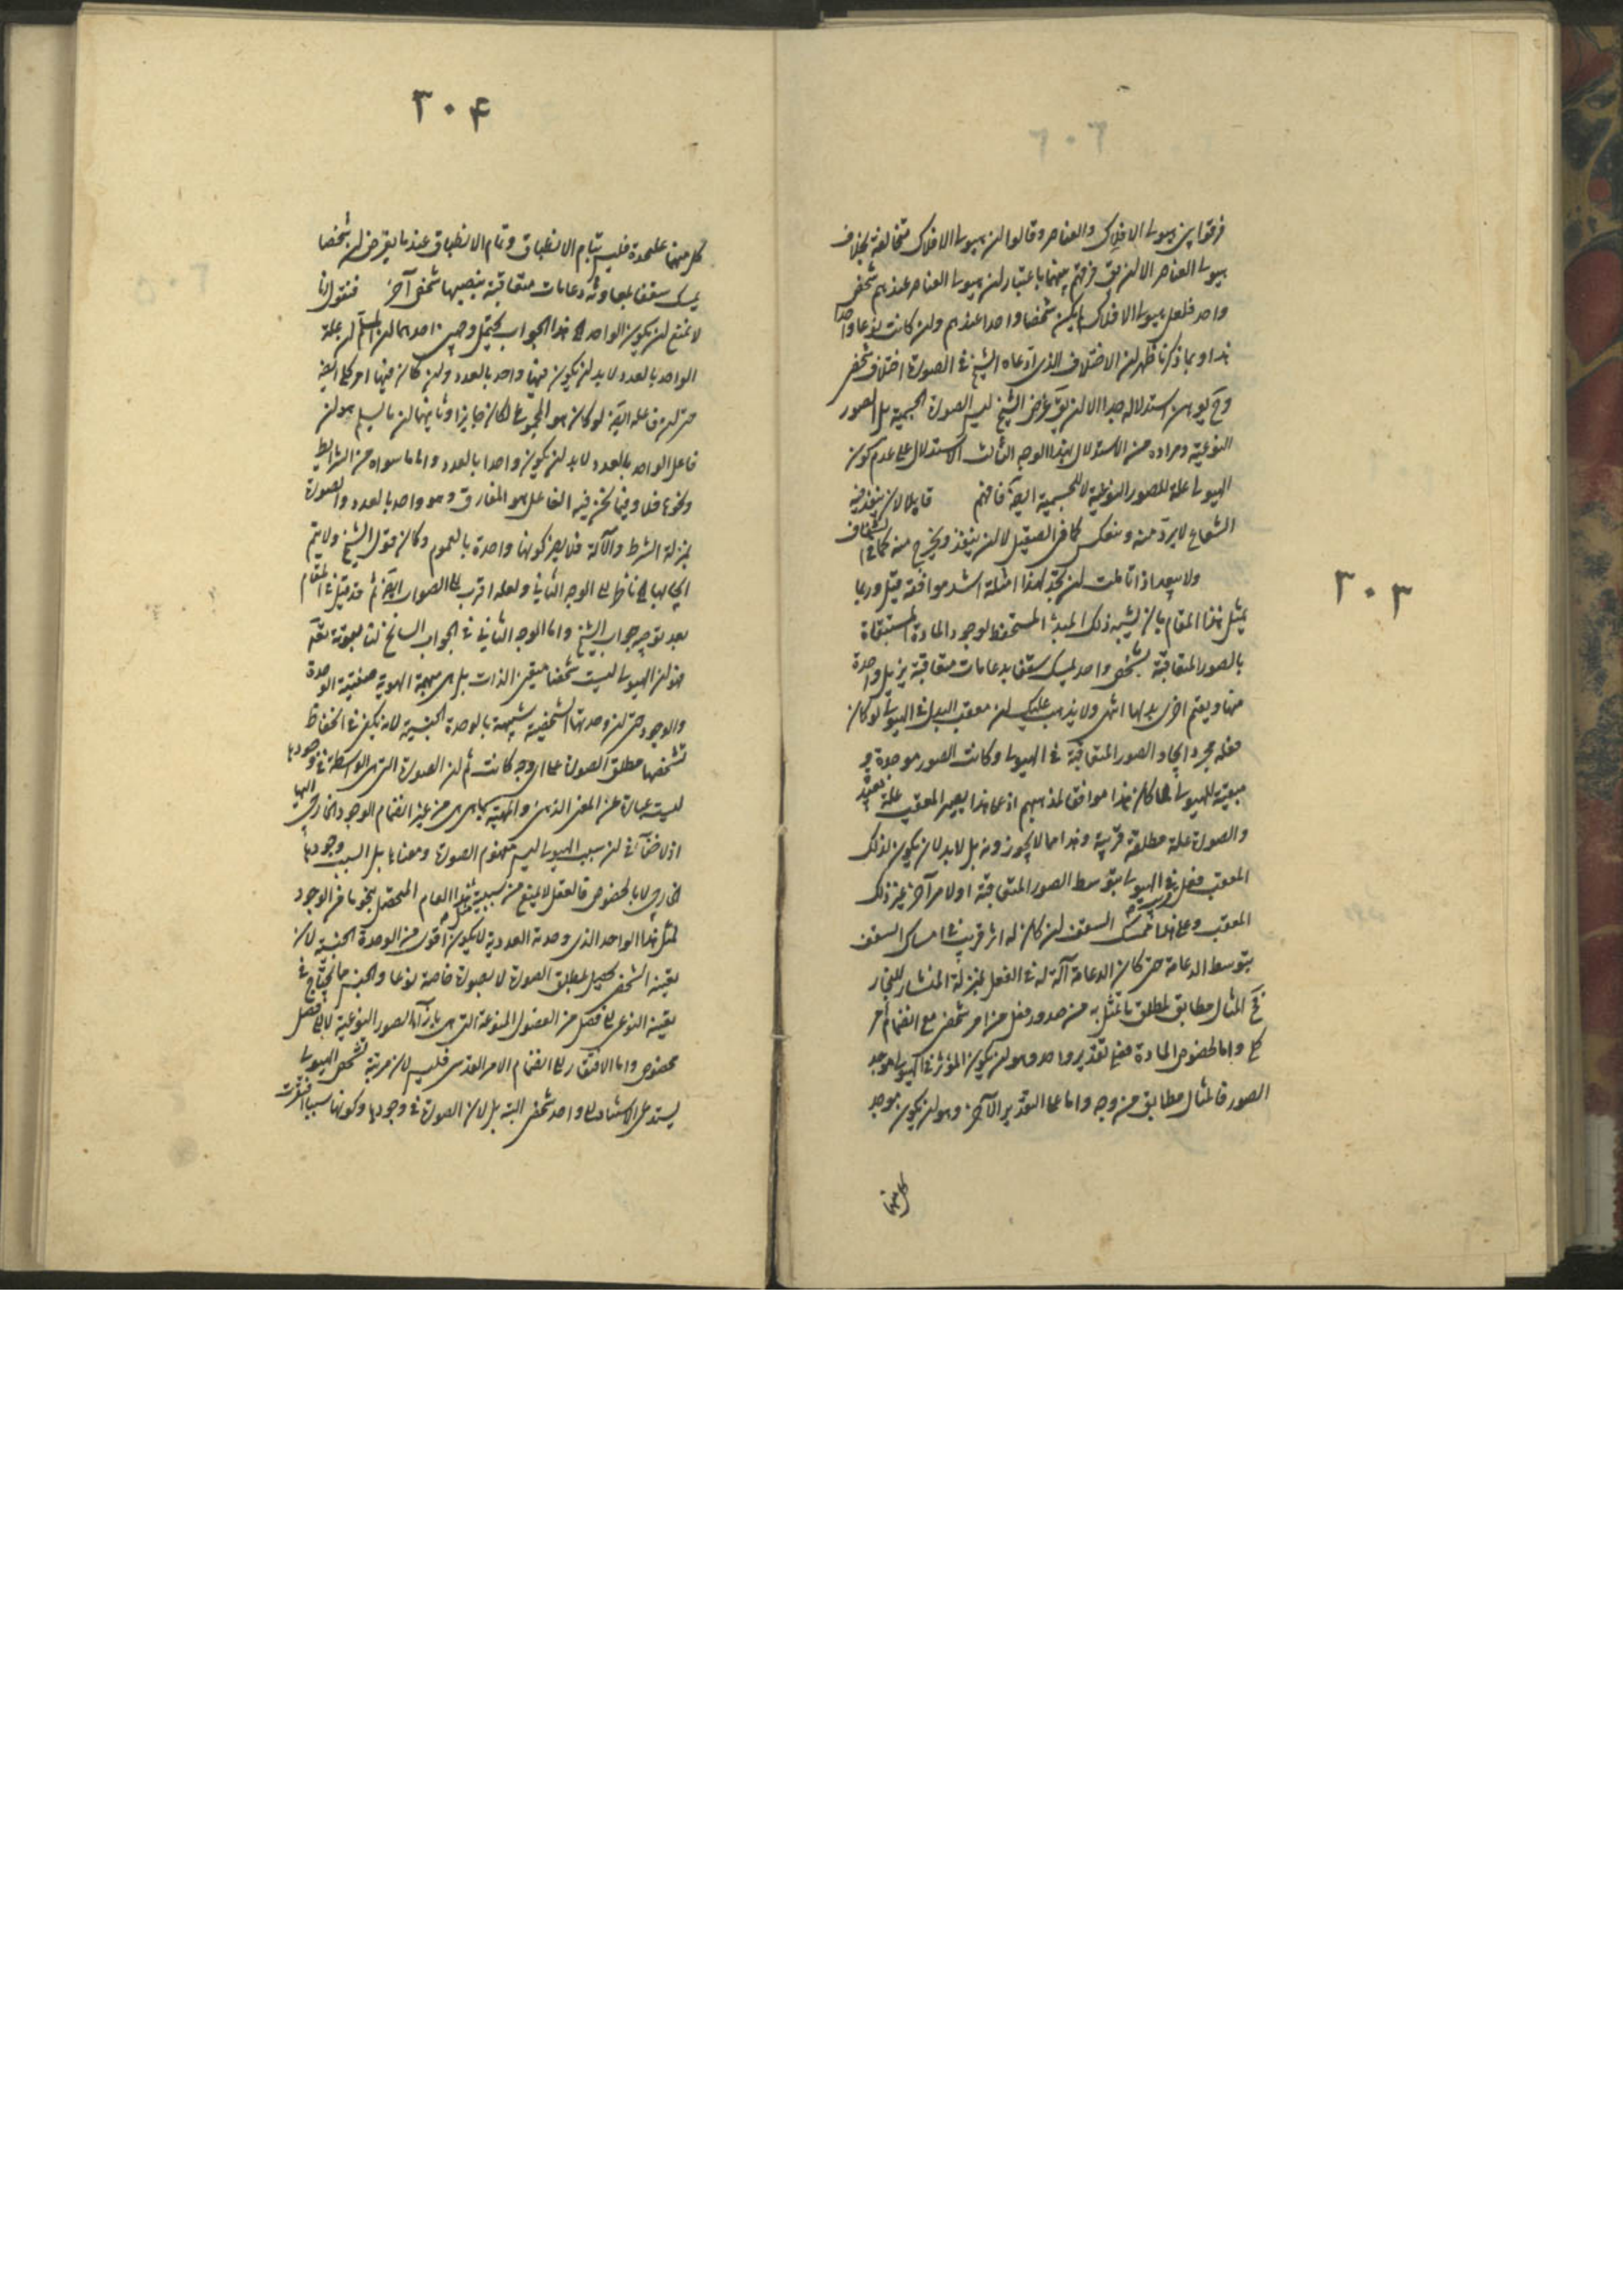 ٣٠٣
فرقوا بين هيولى الافلاك والعناصر وقالوا ان هيولى الافلاك متخالفة بخلاف
هيولى العناصر الا ان يق فرقهم بينهما باعتبار ان هيولى العناصر عندهم شخص
واحد فلعل هيولى الافلاك لم يكن شخصا واحدا عندهم وان كانت نوعا واحدا
هذا وبما ذكرنا ظهر ان الاختلاف الذى ادعاه الشيخ فى الصورة اختلاف شخصى
وح يوهن استدلاله جدا الا ان يق غرض الشيخ ليس الصورة الجسمية بل الصور
النوعية ومراده من الاستدلال بهذا الوجه الثالث الاستدلال على عدم كون
الهيولى علة للصور النوعية لا للجسمية ايضا فافهم قابلا لان ينفذ فيه
الشعاع لا يرد منه وينعكس كما فى الصقيل لا لان ينفذ ويخرج منه كما فى الشفاف
ولا يبعد اذا تاملت ان تجد لهذا امثلة اشد موافقة قيل وربما
يمثل هذا المقام بان يشبه ذلك المبدأ المستحفظ لوجود المادة المستبقاة
بالصور المتعاقبة بشخص واحد يمسك سقفا بدعامات متعاقبة يزيل واحدة
منها ويقيم اخرى بدلها انتهى ولا يذهب عليك ان معقب البدل فى الهيولى لو كان
فعله مجرد ايجاد الصور المتعاقبة فى الهيولى وكانت الصور موجدة و
مبقية للهيولى لما كان هذا موافقا لمذهبهم اذ على هذا يصير المعقب علة بعيدة
والصورة علة مطلقة قريبة وهذا مما لا يجوزونه بل لا بد لان يكون لذلك
المعقب فعل فى الهيولى بتوسط الصور المتعاقبة او لامر آخر غير ذلك
المعقب وعلى هذا فممسك السقف ان كان له اثر قريب فى امساك السقف
بتوسط الدعامة حتى كان الدعامة آلة له فى الفعل بمنزلة المنشار للنجار
فح المثال مطابق لمطلق ما تمثل به من صدور فعل من امر شخصى مع انضمام امر
كلى واما لخصوص المادة فعلى تقدير واحد وهو ان يكون المؤثر فى الهيولى موجد
الصور فالمثال مطابق من وجه واما على التقدير الآخر وهو ان يكون موجد
كل منهما
٣٠۴
كل منهما علىحدة فليس بتام الانطباق وتمام الانطباق عندما يفرض ان شخصا
يمسك سقفا بمعاونة دعامات متعاقبة ينصبها شخص آخر فنقول انا
لا نمنع ان يكون الواحد هذا الجواب يحتمل وجهين احدهما ان المسلم ان علة
الواحد بالعدد لا بد ان يكون فيها واحد بالعدد وان كان فيها امر كلى ايضا
حتى ان فاعله ايضا لو كان هو المجموع لكان جايزا وثانيهما ان ما يسلم هو ان
فاعل الواحد بالعدد لا بد ان يكون واحدا بالعدد واما ما سواه من الشرايط
ونحوها فلا وفيما نحن فيه الفاعل هو المفارق وهو واحد بالعدد والصورة
بمنزلة الشرط والآلة فلا يضر كونها واحدة بالعموم وكان قول الشيخ ولا يتم
ايجابها ناظر الى الوجه الثانى ولعله اقرب الى الصواب ايضا ثم قد قيل فى المقام
بعد توجيه جواب الشيخ واما الوجه الثانى فى الجواب السانح لنا بمعونة تقدم
هو ان الهيولى ليست شخصا متعين الذات بل هى مبهمة الهوية ضعيفة الوحدة
والوجود حتى ان وحدتها الشخصية شبيهة بالوحدة الجنسية لانه يكفى فى انحفاظ
تشخصها مطلق الصورة على اى وجه كانت ثم ان الصورة التى هى الواسطة فى وجودها
ليست عبارة عن المعنى الذهنى والمهية بما هى هى من غير انضمام الوجود الخارجى اليها
اذ لا خفآء فى ان سبب الهيولى ليس مفهوم الصورة ومعناها بل السبب وجودها
الخارجى لا بالخصوص فالعقل لا يمنع من سببية مثل هذا العام المتحصل بنحو ما من الوجود
لمثل هذا الواحد الذى وحدته العددية لا يكون اقوى من الوحدة الجنسية لان
تعينه الشخصى يحصل بمطلق الصورة لا بصورة خاصة نوعا والجنس ما يحتاج فى
تعينه النوعى الى فصل من الفصول المنوعة التى هى بازآء الصور النوعية لا الى فصل
مخصوص واما الافتقار الى انضمام الامر القدسى فليس لان مرتبة تشخص الهيولى
يستدعى الاستناد الى واحد شخصى البتة بل لان الصورة فى وجودها وكونها سببا افتقرت